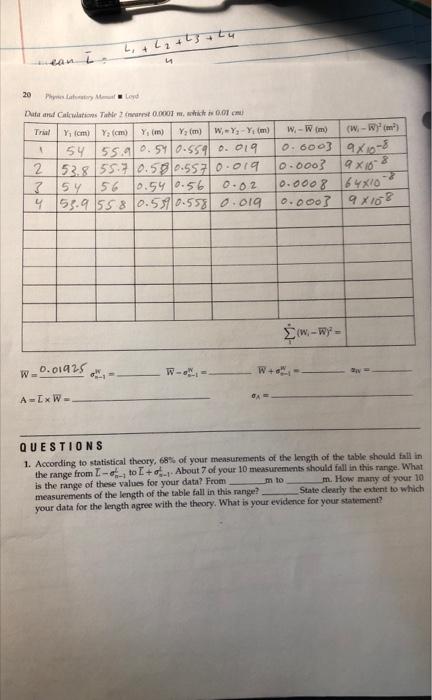 L₁ + L₂ + L₃ + L₄
ean L̄ =
4
20 Physics Laboratory Manual ■ Loyd
Data and Calculations Table 2 (nearest 0.0001 m, which is 0.01 cm)
Trial Y₁ (cm) Y₂ (cm) Y₁ (m) Y₂ (m) Wᵢ = Y₂ – Y₁ (m) Wᵢ – W̄ (m) (Wᵢ – W̄)² (m²)
1 54 55.9 0.54 0.559 0.019 0.0003 9×10⁻⁸
2 53.8 55.7 0.538 0.557 0.019 0.0003 9×10⁻⁸
3 54 56 0.54 0.56 0.02 0.0008 64×10⁻⁸
4 53.9 55.8 0.539 0.558 0.019 0.0003 9×10⁻⁸
Σ(Wᵢ – W̄)² =
W̄ = 0.01925 σᵂₙ₋₁ = W̄ – σᵂₙ₋₁ = W̄ + σᵂₙ₋₁ = αW =
A = L̄ × W̄ = σA =
QUESTIONS
1. According to statistical theory, 68% of your measurements of the length of the table should fall in
the range from L̄ – σᴸₙ₋₁ to L̄ + σᴸₙ₋₁. About 7 of your 10 measurements should fall in this range. What
is the range of these values for your data? From ______ m to ______ m. How many of your 10
measurements of the length of the table fall in this range? ______ State clearly the extent to which
your data for the length agree with the theory. What is your evidence for your statement?